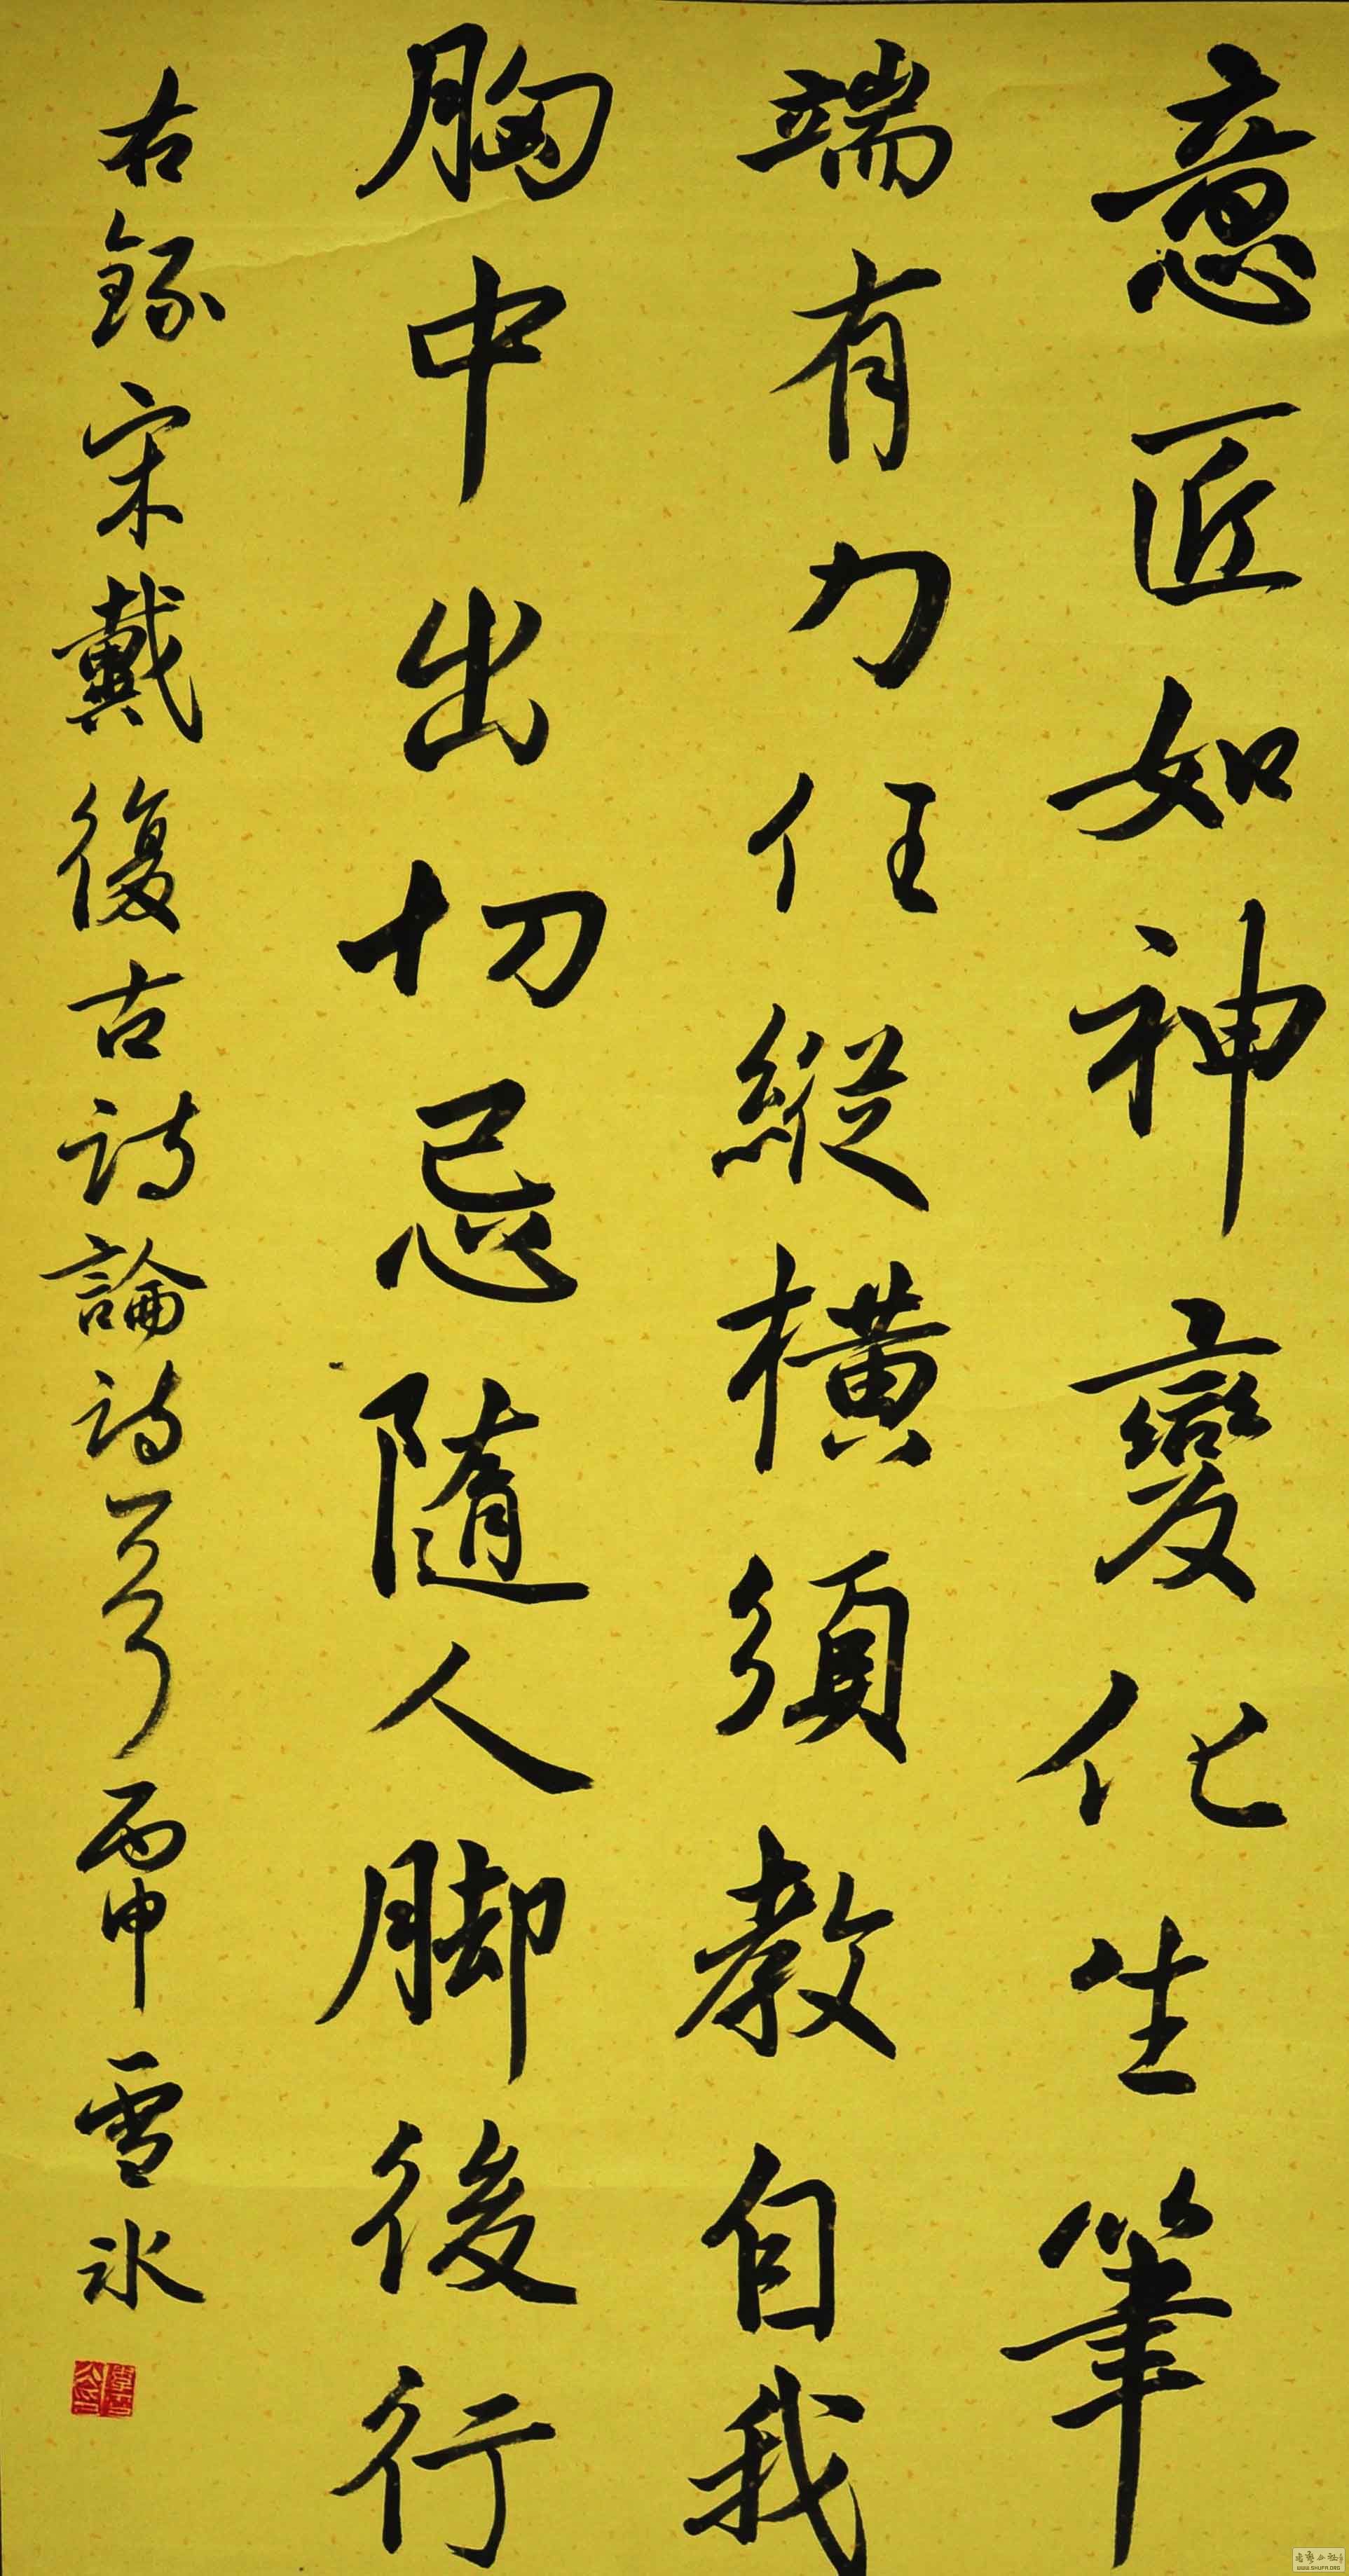 意匠如神變化生筆
端有力任縱橫須教自我
胸中出切忌隨人脚後行
右録宋戴復古詩論詩一首丙申雪冰
WWW.SHUFA.ORG